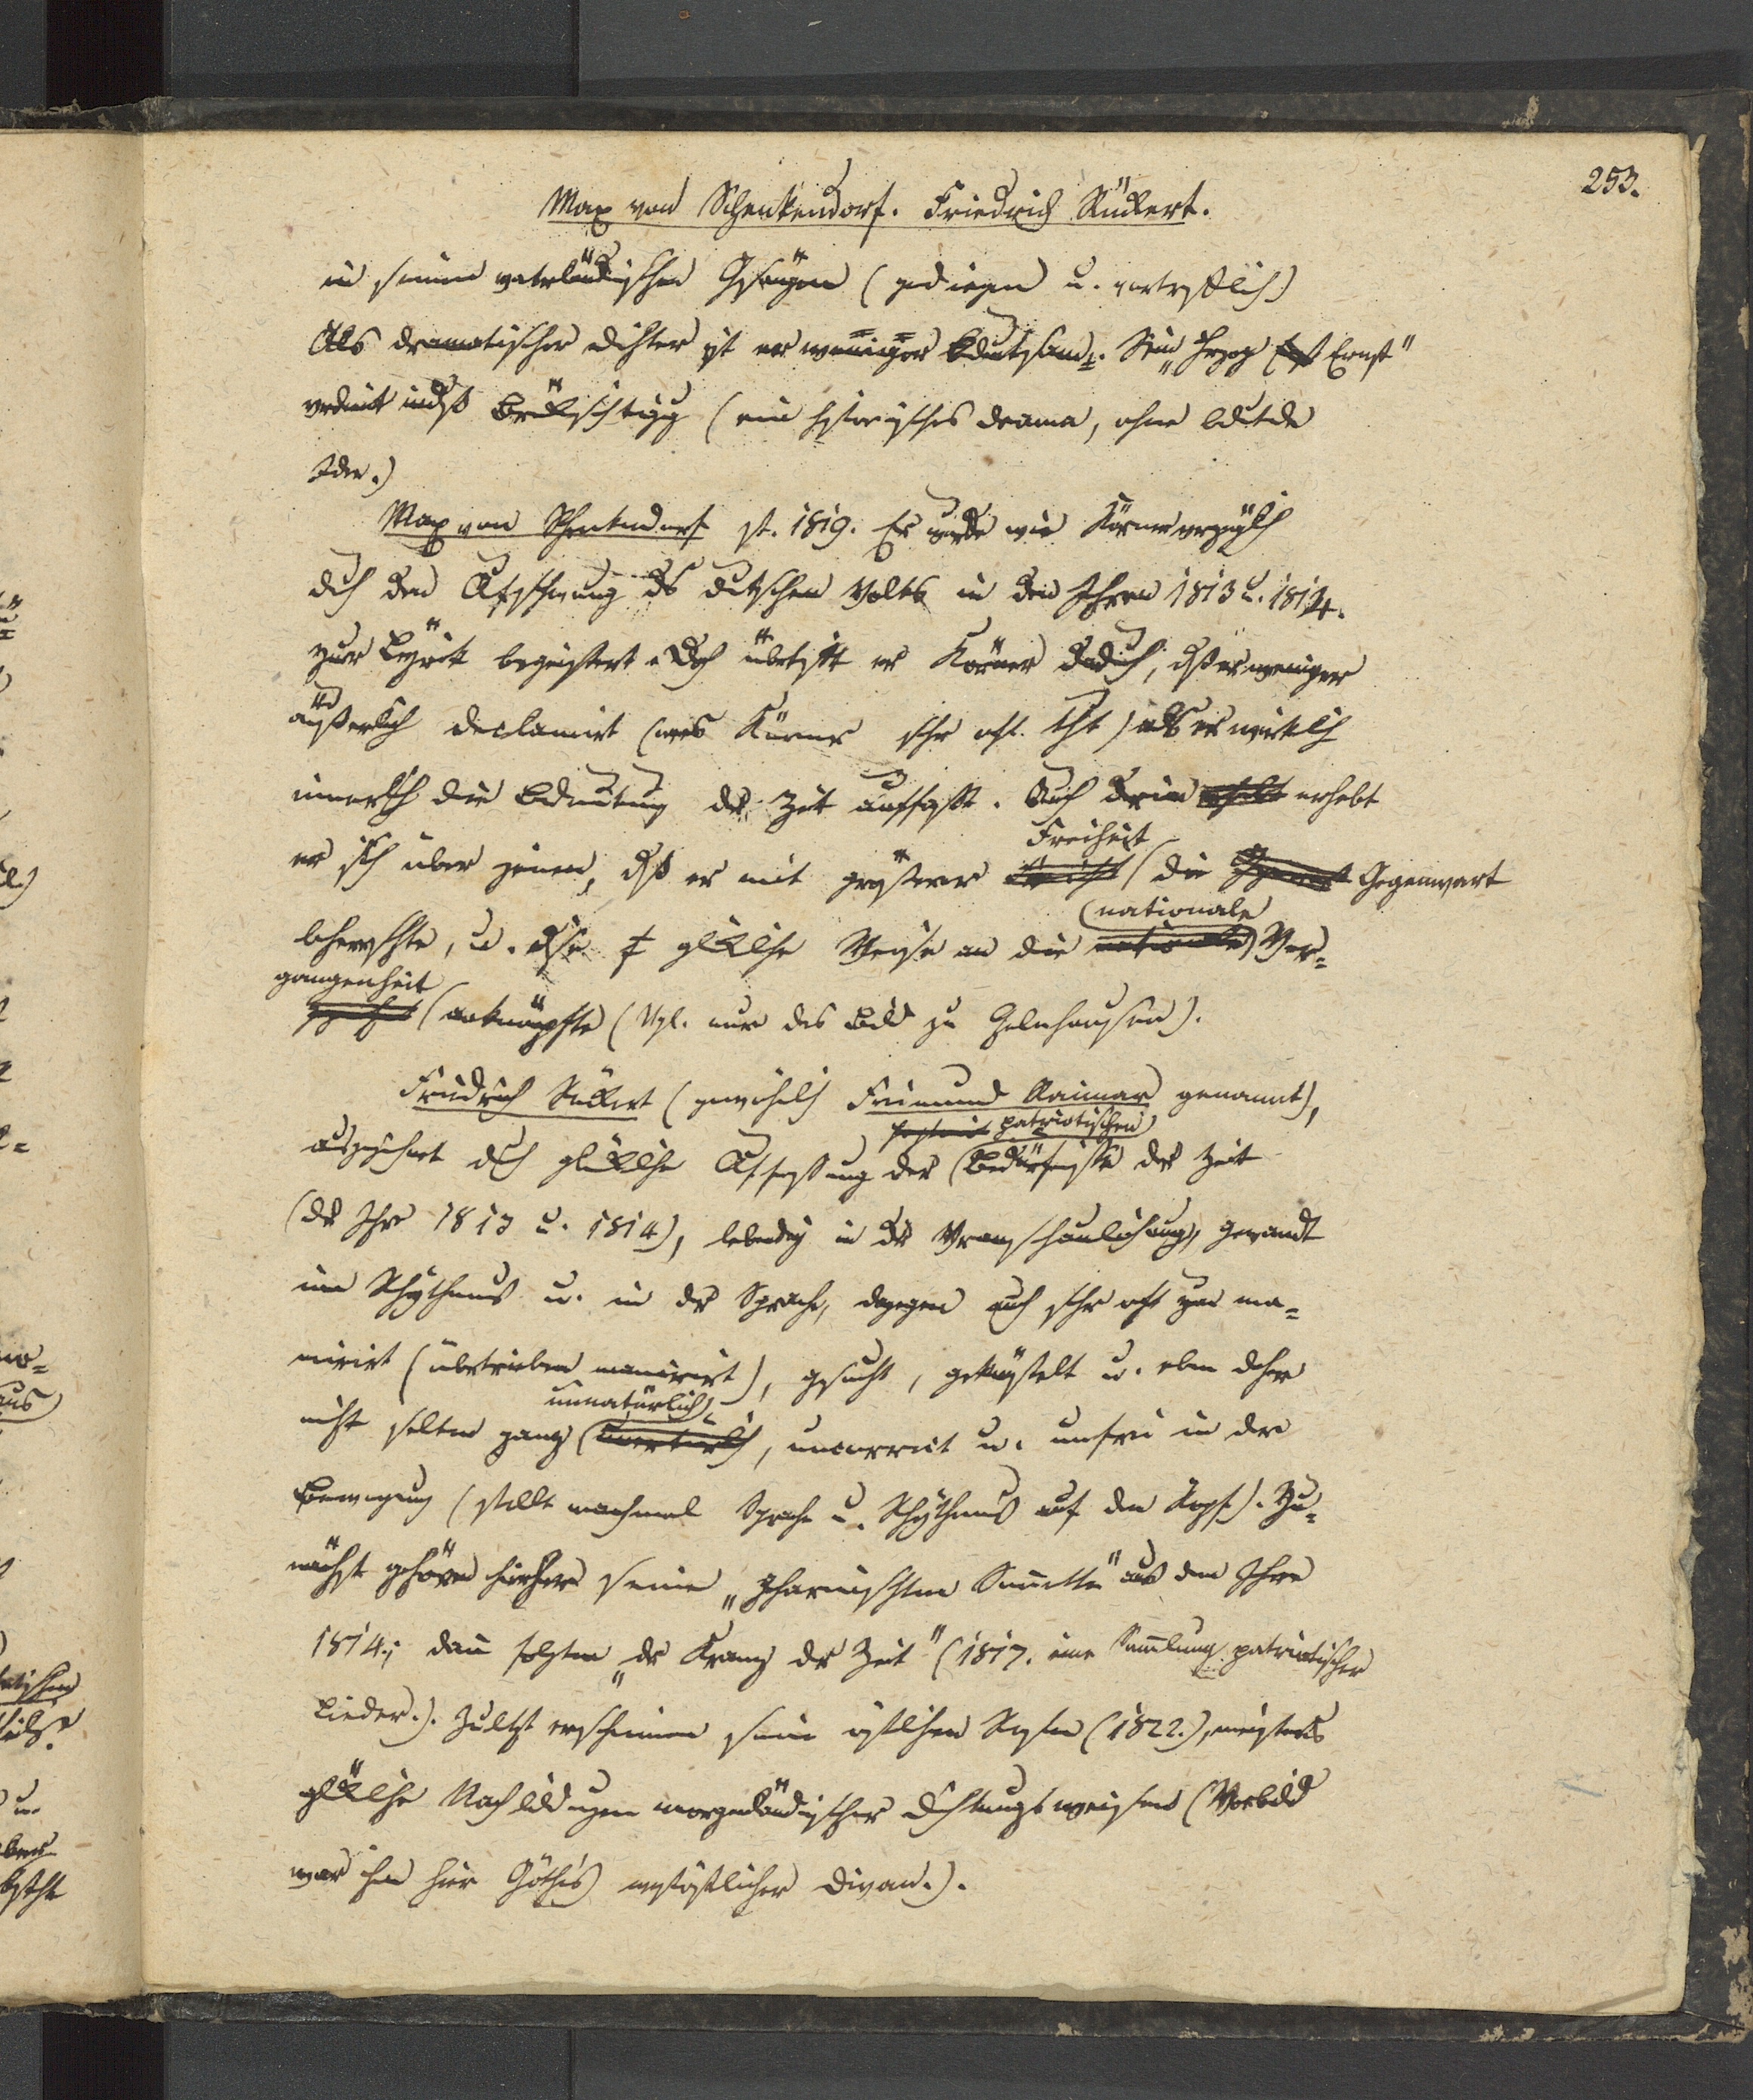 253.
Max von Schenkendorf. Friedrich Rückert.
in seinen vaterländischen Gesängen (gediegen u. vortrefflich)
Als dramatischer Dichter ist er weniger bedeutsam. Sein „Herzog Ernst"
verdient indeß Berücksichtigg (ein historisches Drama, ohne bedeutde
Idee.)
Max von Schenkendorf st. 1819. Er wurde wie Körner vorzüglich
dch den Aufschwung ds deutschen Volks in den Jahren 1813 u. 1814.
zur Lyrik begeistert. Doch übertrifft er Körner dadurch, dß er weniger
äußerlich declamirt (was Körner sehr oft that) als er wirklich
innerlich die Bedeutung der Zeit auffaßte. Auch darin erhebt
er sich über jenen, dß er mit größerer
Freiheit
die Gegenwart
beherrschte, u. diese glückliche Weise an die
(nationale
Ver-
gangenheit
anknüpfte (Vgl. nur das Bild zu Gelnhausen).
Friedrich Rückert (gewöhnlich Freimund Raimar genannt),
patriotischen
ausgezeichnet dch glückliche Auffassung der Bedürfnisse der Zeit
(der Jahre 1813 u. 1814), lebendig in der Veranschaulichung, gewandt
im Rhythmus u. in der Sprache, dagegen auch sehr oft zu ma-
nirirt (übertrieben manirirt), gesucht, gekünstelt u. eben daher
unnatürlich
nicht selten ganz, uncorrect u. unfrei in der
Bewegung (stellt manchmal Sprache u. Rhythmus auf den Kopf). Zu-
nächst gehören hierher seine „Gharnischten Sonette" aus dem Jahre
1814; dann folgten „der Kranz der Zeit" (1817. eine Sammlung patriotischer
Lieder.). Zuletzt erschienen seine östlichen Rosen (1822.), meistens
glückliche Nachbildungen morgenländischer Dichtungsweisen (Vorbild
war ihm hier Göthe's westöstlicher Divan.).